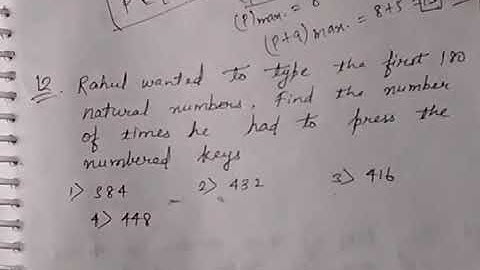 (P)max. = 8
(P+q)max. = 8+5 =
12. Rahul wanted to type the first 180
natural numbers. Find the number
of times he had to press the
numbered keys
1) 384 2) 432 3) 416
4) 448